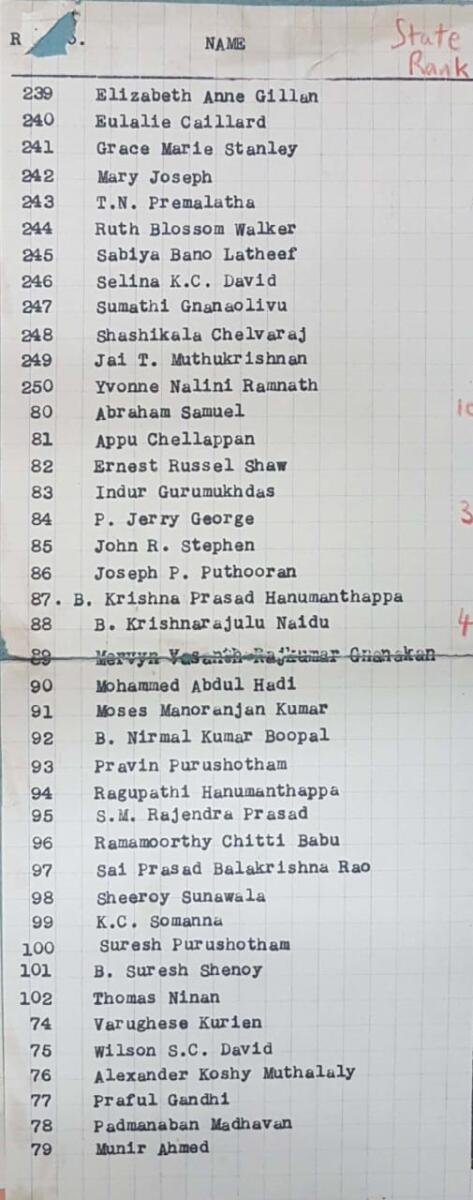 R S. NAME State
Rank
239 Elizabeth Anne Gillan
240 Eulalie Caillard
241 Grace Marie Stanley
242 Mary Joseph
243 T.N. Premalatha
244 Ruth Blossom Walker
245 Sabiya Bano Latheef
246 Selina K.C. David
247 Sumathi Gnanaolivu
248 Shashikala Chelvaraj
249 Jai T. Muthukrishnan
250 Yvonne Nalini Ramnath
80 Abraham Samuel
81 Appu Chellappan
82 Ernest Russel Shaw
83 Indur Gurumukhdas
84 P. Jerry George 3
85 John R. Stephen
86 Joseph P. Puthooran
87. B. Krishna Prasad Hanumanthappa
88 B. Krishnarajulu Naidu 4
89 Mervyn Vasanth Rajkumar Gnanakan
90 Mohammed Abdul Hadi
91 Moses Manoranjan Kumar
92 B. Nirmal Kumar Boopal
93 Pravin Purushotham
94 Ragupathi Hanumanthappa
95 S.M. Rajendra Prasad
96 Ramamoorthy Chitti Babu
97 Sai Prasad Balakrishna Rao
98 Sheeroy Sunawala
99 K.C. Somanna
100 Suresh Purushotham
101 B. Suresh Shenoy
102 Thomas Ninan
74 Varughese Kurien
75 Wilson S.C. David
76 Alexander Koshy Muthalaly
77 Praful Gandhi
78 Padmanaban Madhavan
79 Munir Ahmed